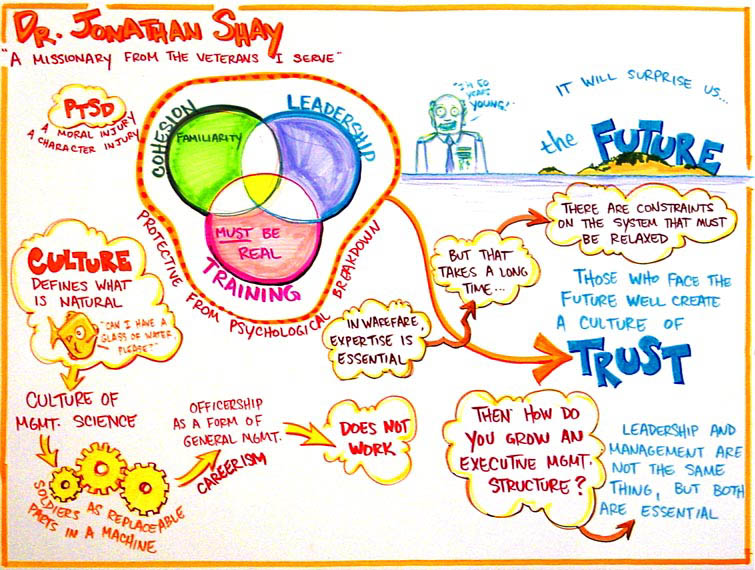 DR. JONATHAN SHAY
"A MISSIONARY FROM THE VETERANS I SERVE"
PTSD
A MORAL INJURY
A CHARACTER INJURY
COHESION
FAMILIARITY
LEADERSHIP
MUST BE
REAL
TRAINING
PROTECTIVE FROM PSYCHOLOGICAL BREAKDOWN
"I'M 50
YEARS
YOUNG!"
IT WILL SURPRISE US...
the FUTURE
CULTURE
DEFINES WHAT
IS NATURAL
"CAN I HAVE A
GLASS OF WATER,
PLEASE?"
CULTURE OF
MGMT. SCIENCE
SOLDIERS AS REPLACEABLE
PARTS IN A MACHINE
OFFICERSHIP
AS A FORM OF
GENERAL MGMT.
CAREERISM
DOES NOT
WORK
IN WAREFARE,
EXPERTISE IS
ESSENTIAL
BUT THAT
TAKES A LONG
TIME...
THERE ARE CONSTRAINTS
ON THE SYSTEM THAT MUST
BE RELAXED
THOSE WHO FACE THE
FUTURE WELL CREATE
A CULTURE OF
TRUST
THEN HOW DO
YOU GROW AN
EXECUTIVE MGMT.
STRUCTURE?
LEADERSHIP AND
MANAGEMENT ARE
NOT THE SAME
THING, BUT BOTH
ARE ESSENTIAL